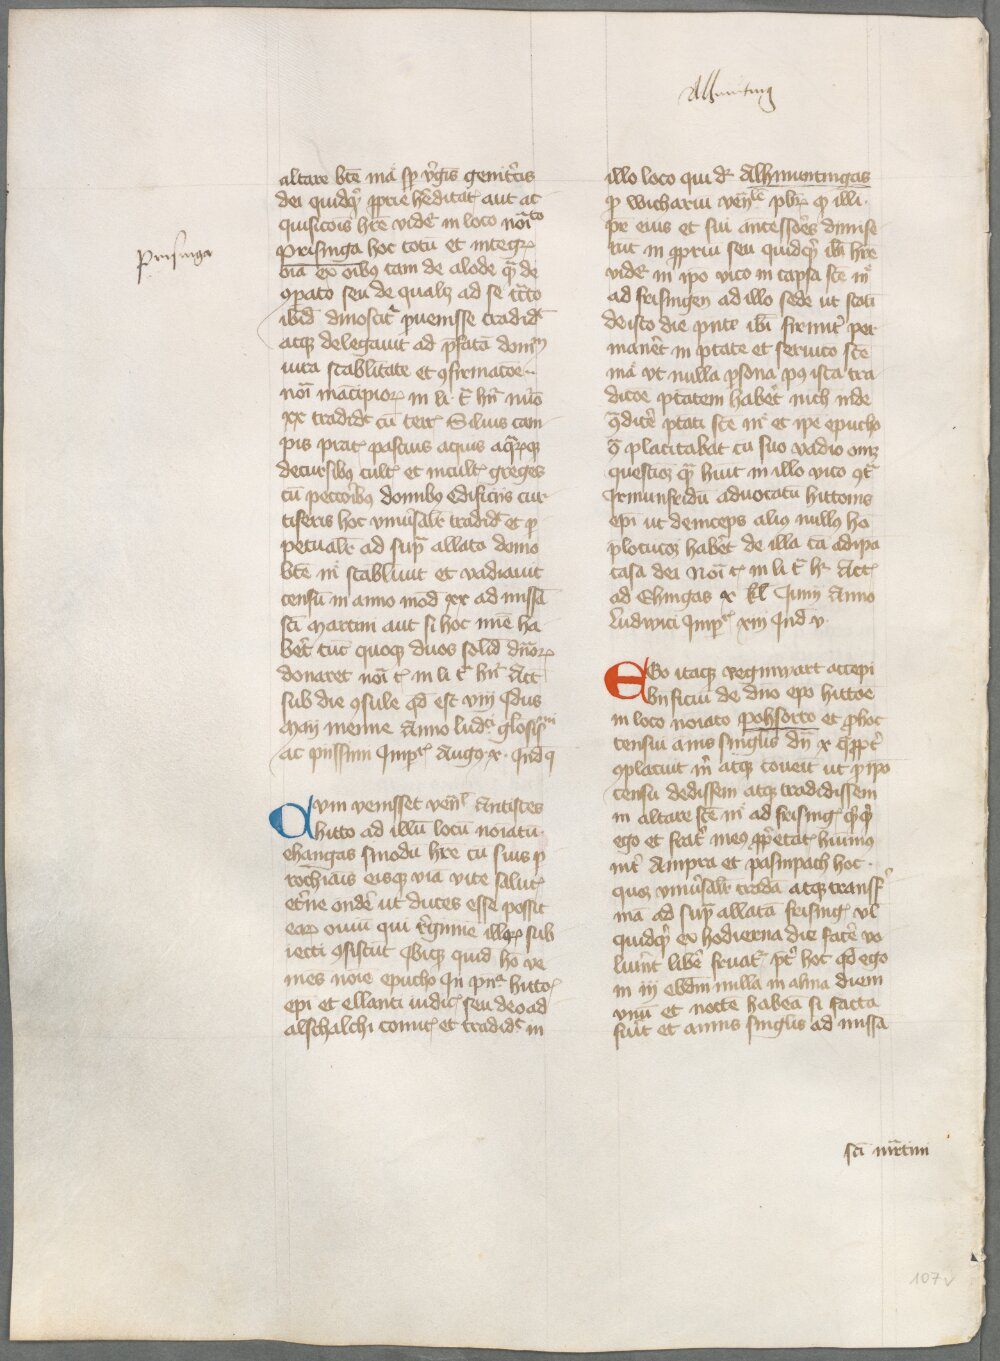 Alhmuting
Prisinga
altare bte ma sp vgis genitcis
dei quidq pprie heditat aut ac
quisicois hre videt in loco noiato
prisinga hoc totu et integr
oia ex oibus tam de alode qua de
9pato seu de qualibz ad se tracto
ibid dinoscit puenisse tradid
atqz delegauit ad pfata domu
iuxta stablitate et 9firmacoe
noi macipior in li t hn nuo
xx tradidit cu terr Siluis cam
pis pratis pascuis aquis aqrqz
decursibus cult et incult greges
cu peccoribus domibus edificiis cur
tiferis hoc vniusalr tradid et p
petualr ad supra allata domo
bte m stabliuit et vadiauit
censu in anno mod xx ad missa
sci martini aut si hoc mie ha
bet tuc quoqz duos solid dnor
donaret noi t in li t hn Act
sub die 9sule qd est viij Idus
maij mense Anno lud glosissi
ac piissimi Imp Augo x Ind q
Cvm venisset ven Antistes
hitto ad illu locu noiatu
ehangas sinodu hre cu suis p
rochiais eisqz via vite salut
etne onde ut duces esse possit
ear ouiu qui regimie illor sub
iecti 9sistut Vbiqz quid ho ve
mes noie epucho In pnt hitto
epi et ellanti iudic seu deoad
alschalchi comit et tradid in
illo loco qui dr Alhmuntingas
p wichariu ven pbr qz illi
pr eius et sui antessoes dimise
rut in ppriu seu quidq ibi hre
videt in ipo vico in capsa sce m
ad frisingen ad illo sede ut stati
deisto die pnte ibi firmit per
manet in ptate et seruico sce
ma vt nulla psona pus ista tra
dicoe ptatem habet nich inde
9dite ptati sce m et ipe epucho
9 placitabat cu suo vadio omz
questioz qua huit in illo vico 9t
Irmunfridu aduocatu hittonis
epi ut deinceps alius nullus ho
plocucoz habet de illa ca adipa
casa dei noi t in li t hr Act
ad Ehingas x kl Junij Anno
ludwici Imp xiij Ind v
Ego itaqz Reginwart accepi
bnficiu de dno epo hittoe
in loco noiato pohsotto et phoc
censui anis singlis dn x qppt
9placuit m atqz coueit ut p ipo
censu dedissem atqz tradidissem
in altare sce m ad frising qdqd
ego et frat meus ppetat huimus
int Ampra et pasinpach hoc
quoz vniusalr trada atqz transf
ma ad supra allata frising vl
quidq ex hodierna die face vo
luint libe fruat pt hoc qd ego
in iij ebdm nulla in alma diem
vnu et nocte habea si facta
fuit et annis singlis ad missa
sci martini
107v